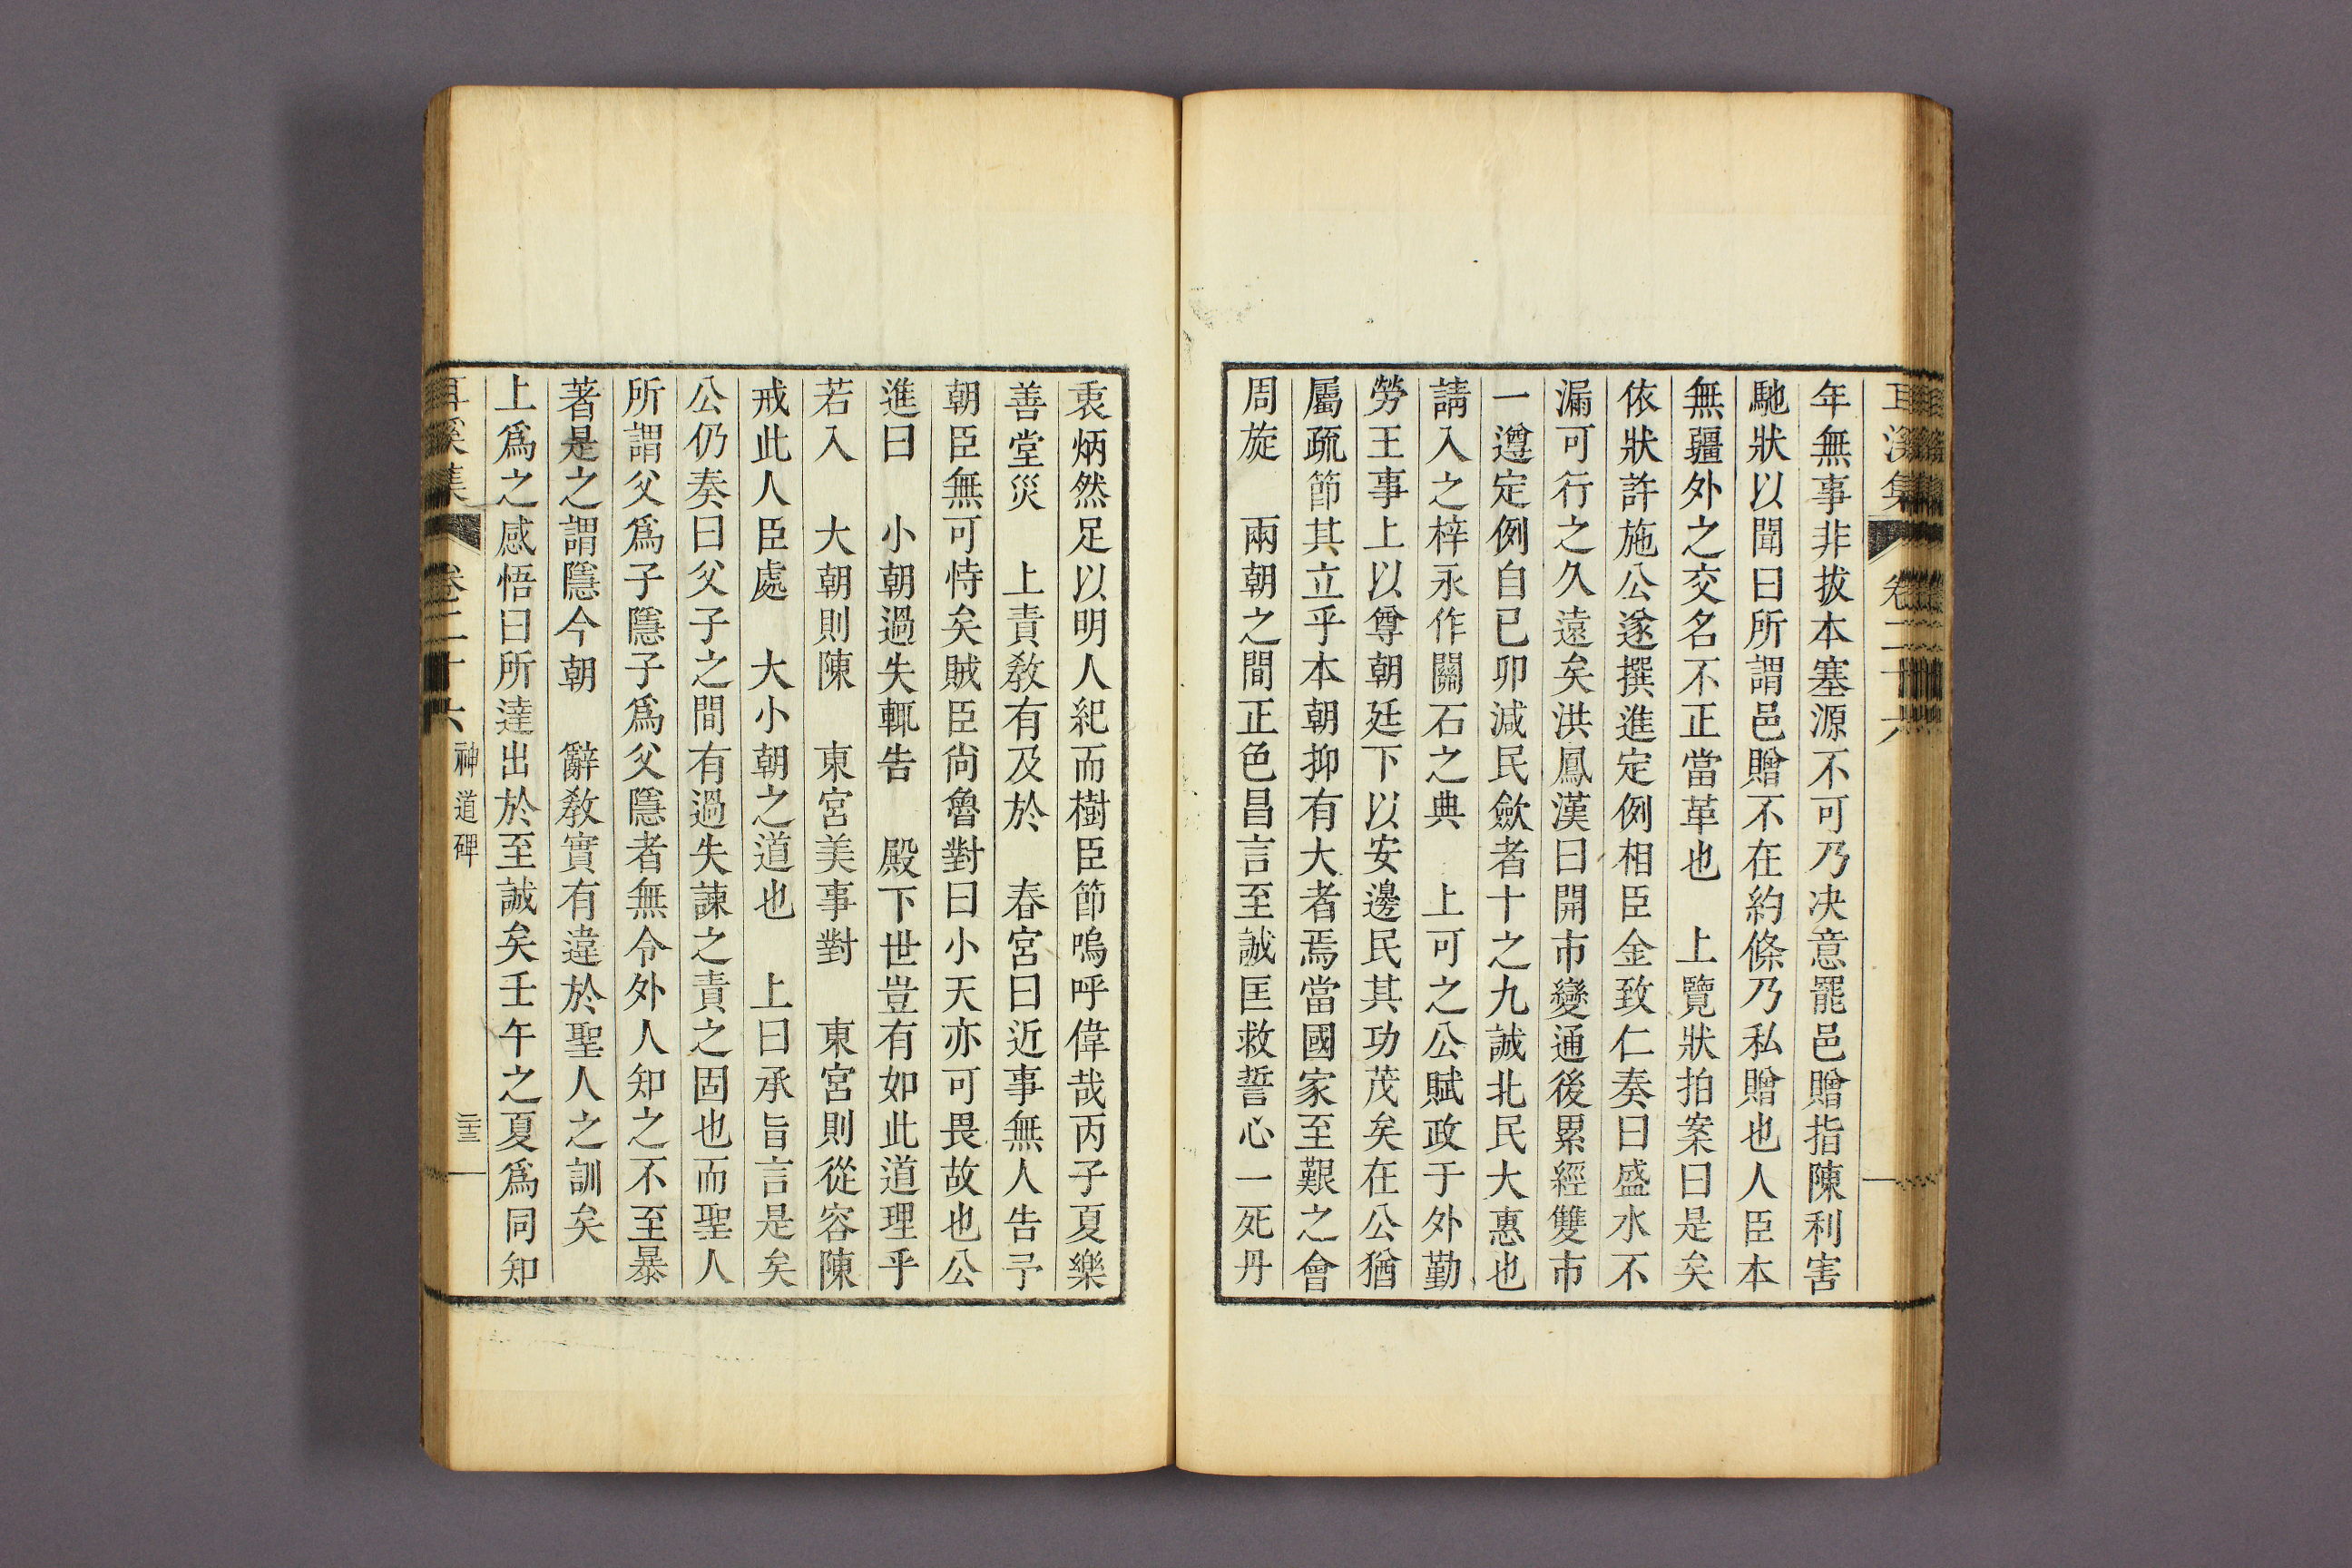 年無事非拔本塞源不可乃决意罷邑贈指陳利害
馳狀以聞曰所謂邑贈不在約條乃私贈也人臣本
無疆外之交名不正當革也　上覽狀拍案曰是矣
依狀許施公遂撰進定例相臣金致仁奏曰盛水不
漏可行之久遠矣洪鳳漢曰開市變通後累經雙市
一遵定例自已卯減民歛者十之九誠北民大惠也
請入之梓永作關石之典　上可之公賦政于外勤
勞王事上以尊朝廷下以安邊民其功茂矣在公猶
屬疏節其立乎本朝抑有大者焉當國家至艱之會
周旋　兩朝之間正色昌言至誠匡救誓心一死丹
衷炳然足以明人紀而樹臣節嗚呼偉哉丙子夏樂
善堂災　上責教有及於　春宮曰近事無人告予
朝臣無可恃矣賊臣尙魯對曰小天亦可畏故也公
進曰　小朝過失輒告　殿下世豈有如此道理乎
若入　大朝則陳　東宮美事對　東宮則從容陳
戒此人臣處　大小朝之道也　上曰承旨言是矣
公仍奏曰父子之間有過失諫之責之固也而聖人
所謂父爲子隱子爲父隱者無令外人知之不至暴
著是之謂隱今朝　辭教實有違於聖人之訓矣
上爲之感悟曰所達出於至誠矣壬午之夏爲同知
耳溪集　卷二十六　神道碑　二十三